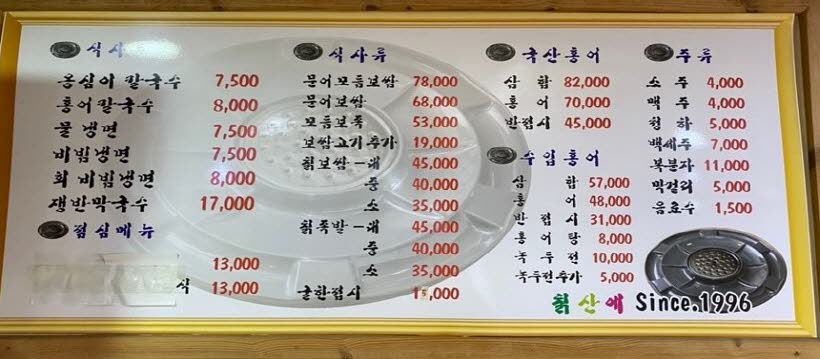 식사
옹심이 칼국수 7,500
홍어칼국수 8,000
물 냉면 7,500
비빔냉면 7,500
회 비빔냉면 8,000
쟁반막국수 17,000
점심메뉴
13,000
식 13,000
식사류
문어모듬보쌈 78,000
문어보쌈 68,000
모듬보쪽 53,000
보쌈고기추가 19,000
칡보쌈-대 45,000
중 40,000
소 35,000
칡족발-대 45,000
중 40,000
소 35,000
굴한접시 15,000
국산홍어
삼 합 82,000
홍 어 70,000
반접시 45,000
수입홍어
삼 합 57,000
홍 어 48,000
반 접 시 31,000
홍 어 탕 8,000
녹 두 전 10,000
녹두전추가 5,000
주류
소 주 4,000
맥 주 4,000
청 하 5,000
백세주 7,000
복분자 11,000
막걸리 5,000
음료수 1,500
칡산애 Since.1996